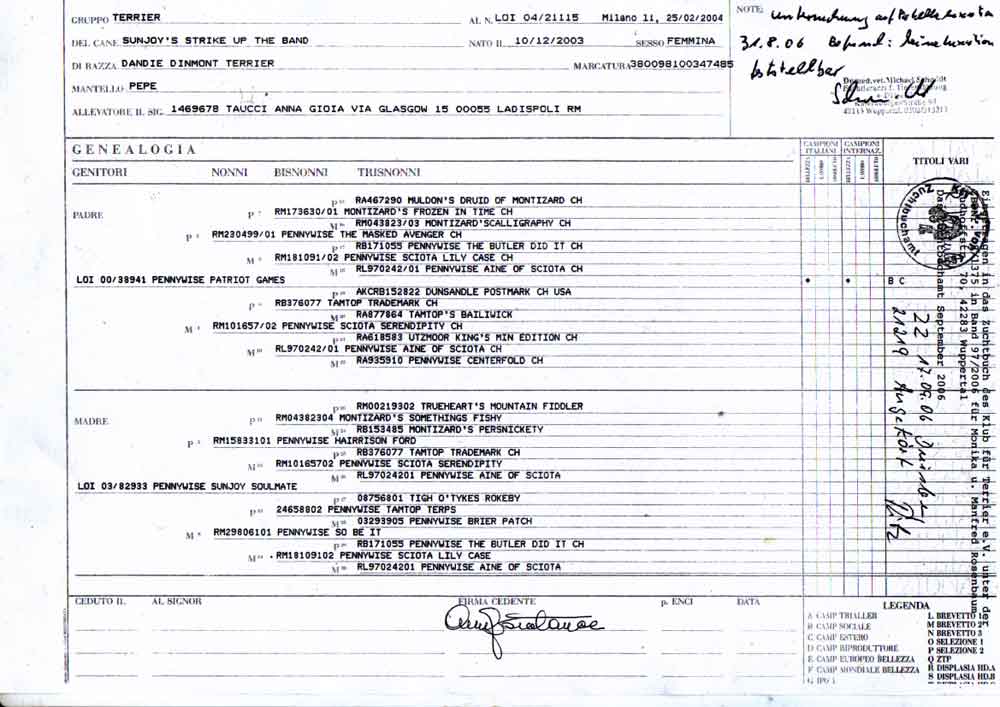 GRUPPO TERRIER AL N. LOI 04/21115 Milano 11, 25/02/2004
DEL CANE SUNJOY'S STRIKE UP THE BAND NATO IL 10/12/2003 SESSO FEMMINA
DI RAZZA DANDIE DINMONT TERRIER MARCATURA 380098100347485
MANTELLO PEPE
ALLEVATORE IL SIG. 1469678 TAUCCI ANNA GIOIA VIA GLASGOW 15 00055 LADISPOLI RM
NOTE: Untersuchung auf Patellaluxation
31.8.06 Befund: keine Luxation
feststellbar
Dr. med. vet. Michael Schmidt
GENEALOGIA
GENITORI NONNI BISNONNI TRISNONNI
CAMPIONI ITALIANI CAMPIONI INTERNAZ.
BELLEZZA LAVORO ASSOLUTO BELLEZZA LAVORO ASSOLUTO
TITOLI VARI
PADRE
P RA467290 MULDON'S DRUID OF MONTIZARD CH
P RM173630/01 MONTIZARD'S FROZEN IN TIME CH
M RM043823/03 MONTIZARD'SCALLIGRAPHY CH
P RM230499/01 PENNYWISE THE MASKED AVENGER CH
P RB171055 PENNYWISE THE BUTLER DID IT CH
M RM181091/02 PENNYWISE SCIOTA LILY CASE CH
M RL970242/01 PENNYWISE AINE OF SCIOTA CH
LOI 00/38941 PENNYWISE PATRIOT GAMES * * B C
P AKCRB152822 DUNSANDLE POSTMARK CH USA
P RB376077 TAMTOP TRADEMARK CH
M RA877864 TAMTOP'S BAILIWICK
M RM101657/02 PENNYWISE SCIOTA SERENDIPITY CH
P RA618583 UTZMOOR KING'S MIN EDITION CH
M RL970242/01 PENNYWISE AINE OF SCIOTA CH
M RA935910 PENNYWISE CENTERFOLD CH
MADRE
P RM00219302 TRUEHEART'S MOUNTAIN FIDDLER
P RM04382304 MONTIZARD'S SOMETHINGS FISHY
M RB153485 MONTIZARD'S PERSNICKETY
P RM15833101 PENNYWISE HAIRRISON FORD
P RB376077 TAMTOP TRADEMARK CH
M RM10165702 PENNYWISE SCIOTA SERENDIPITY
M RL97024201 PENNYWISE AINE OF SCIOTA
LOI 03/82933 PENNYWISE SUNJOY SOULMATE
P 08756801 TIGH O'TYKES ROKEBY
P 24658802 PENNYWISE TAMTOP TERPS
M 03293905 PENNYWISE BRIER PATCH
M RM29806101 PENNYWISE SO BE IT
P RB171055 PENNYWISE THE BUTLER DID IT CH
M RM18109102 PENNYWISE SCIOTA LILY CASE
M RL97024201 PENNYWISE AINE OF SCIOTA
Eingetragen in das Zuchtbuch des Klub für Terrier e.V. unter der
1375 in Band 97/2006 für Monika u. Manfred Rosenbaum
70, 42283 Wuppertal
Das Zuchtbuchamt September 2006
Zuchtbuchamt
22 17.09.06
21219 Angekört
CEDUTO IL AL SIGNOR FIRMA CEDENTE p. ENCI DATA
LEGENDA
A CAMP TRIALLER
B CAMP SOCIALE
C CAMP ESTERO
D CAMP RIPRODUTTORE
E CAMP EUROPEO BELLEZZA
F CAMP MONDIALE BELLEZZA
G IPO 1
L BREVETTO 1
M BREVETTO 2
N BREVETTO 3
O SELEZIONE 1
P SELEZIONE 2
Q ZTP
R DISPLASIA HD.A
S DISPLASIA HD.B